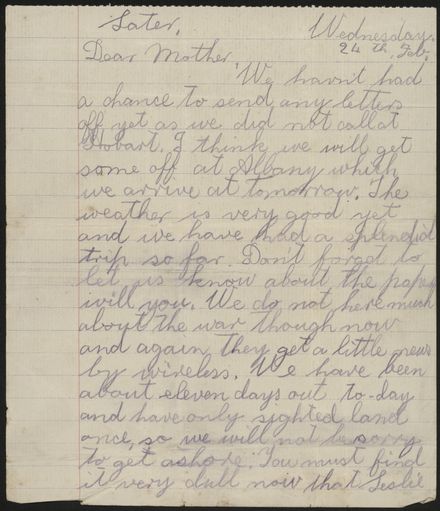 Later.
Wednesday.
24 th. Feb.
Dear Mother
We havn't had
a chance to send any letters
off yet as we did not call at
Hobart. I think we will get
some off at Albany which
we arrive at tomorrow. The
weather is very good yet
and we have had a splendid
trip so far. Don't forget to
let us know about the
will you. We do not here much
about the war though now
and again they get a little news
by wireless. We have been
about eleven days out to-day
and have only sighted land
once, so we will not be sorry
to get ashore. You must find
it very dull now that Leslie